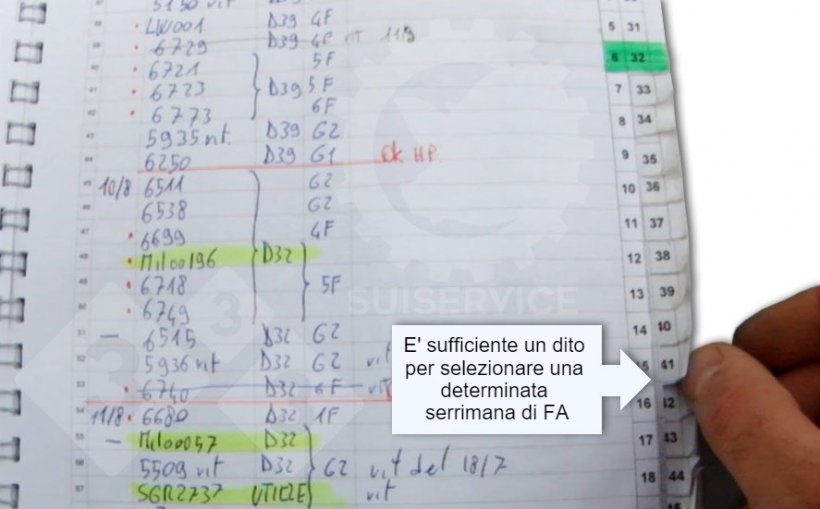 5150 vit D39 4F
LW001 D39 4F
6729 D39 4F vit 11/9
6721 5F
6723 D39 5F
6773 6F
5935 vit. D39 G2
6250 D39 G1 ok HP.
10/8 6511 G2
6538 G2
6699 4F
Mil00196 D32
6718 5F
6749
6515 D32 G2
5936 vit D32 G2 vit
6740 D32 6F
11/8 6680 D32 1F
Mil00057 D32
5509 vit D32 G2 vit del 18/7
SGR2737 UTICZE vit
5 31
6 32
7 33
8 34
9 35
10 36
11 37
12 38
13 39
14 40
41
16 42
17 43
18 44
E' sufficiente un dito
per selezionare una
determinata
serrimana di FA
333
SUISERVICE